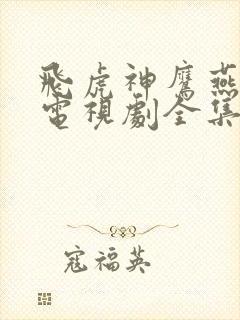 飛虎神鷹燕
電視劇全集
寇福英